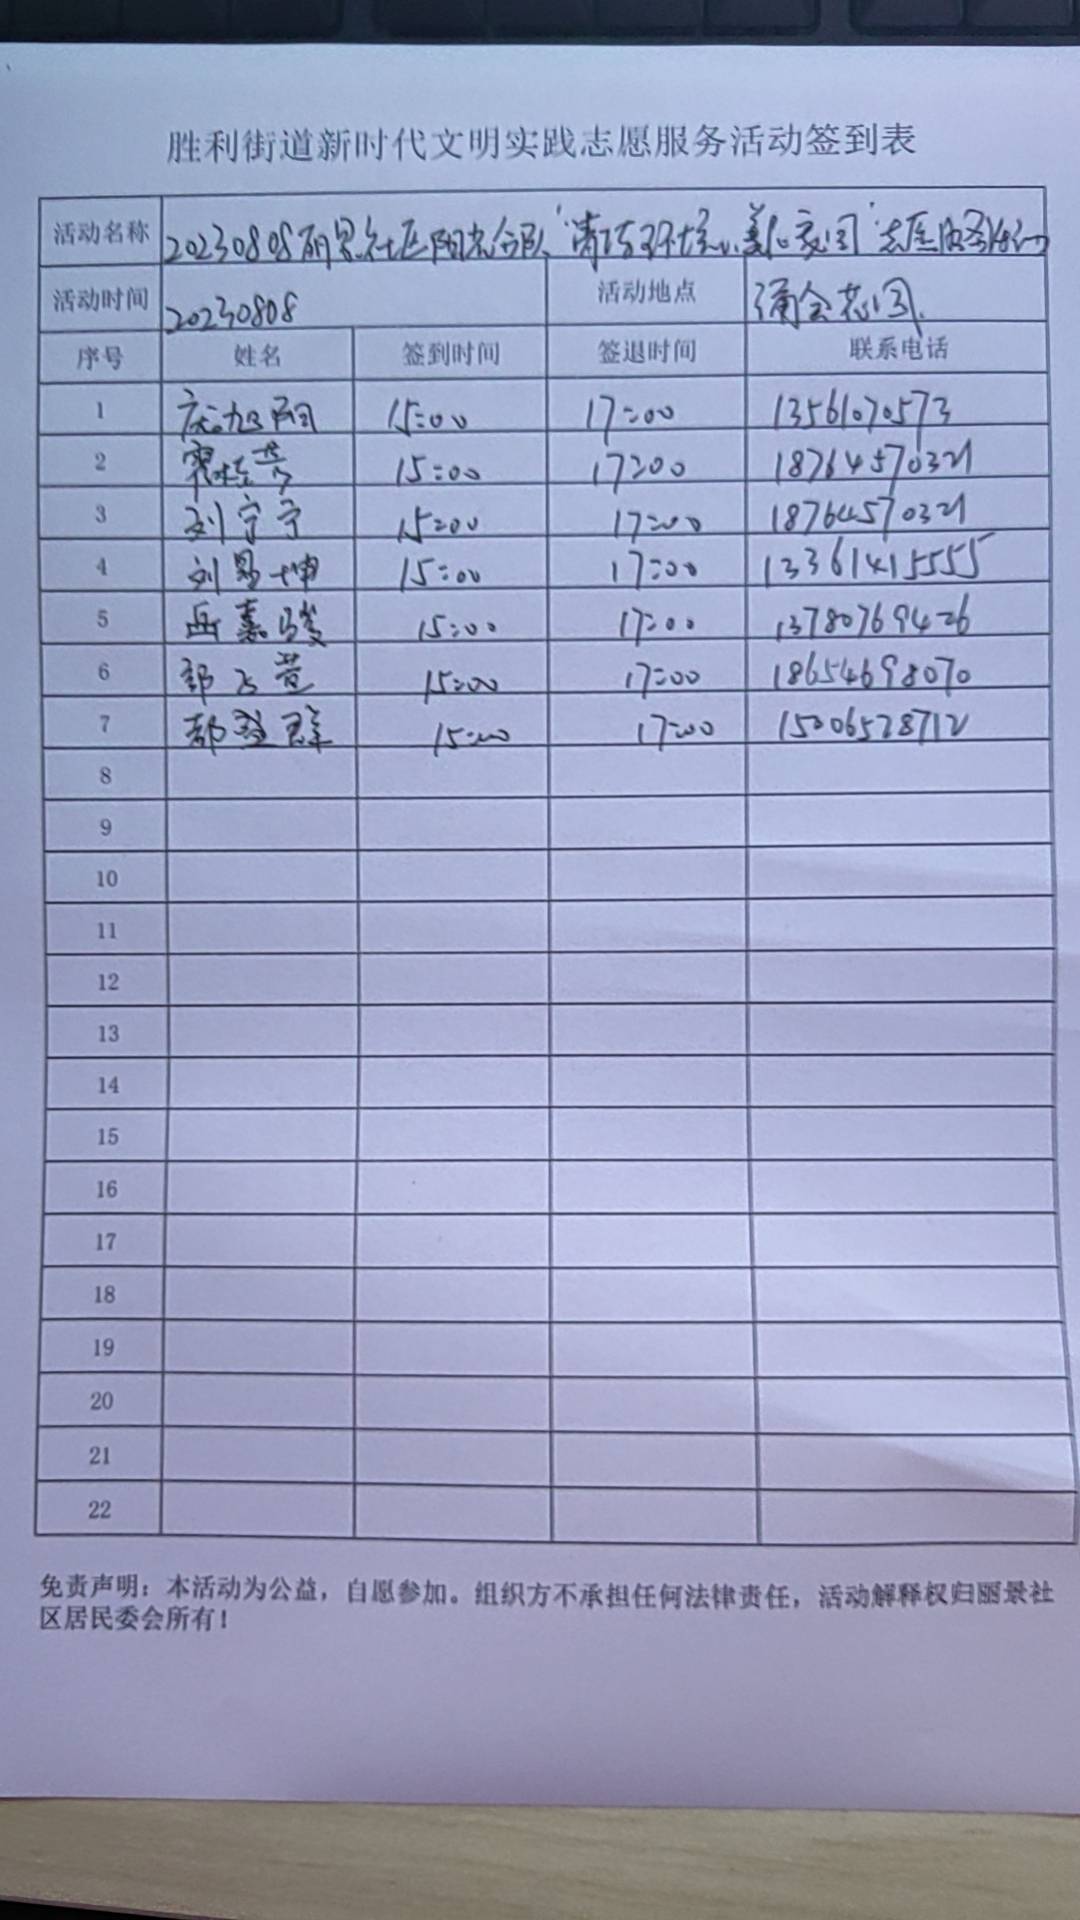 胜利街道新时代文明实践志愿服务活动签到表
活动名称 20230808丽景社区阳光分队“清洁环境，美化家园”志愿服务活动
活动时间 20230808 活动地点 涌金花园
序号 姓名 签到时间 签退时间 联系电话
1 旭阳 15:00 17:00 13561070573
2 桂芳 15:00 17:00 18764570321
3 刘宁宁 15:00 17:00 18764570321
4 刘景坤 15:00 17:00 13361415555
5 岳嘉骏 15:00 17:00 13780769426
6 郭 萱 15:00 17:00 18654698070
7 群 15:00 17:00 15006528712
8
9
10
11
12
13
14
15
16
17
18
19
20
21
22
免责声明：本活动为公益，自愿参加。组织方不承担任何法律责任，活动解释权归丽景社
区居民委会所有！